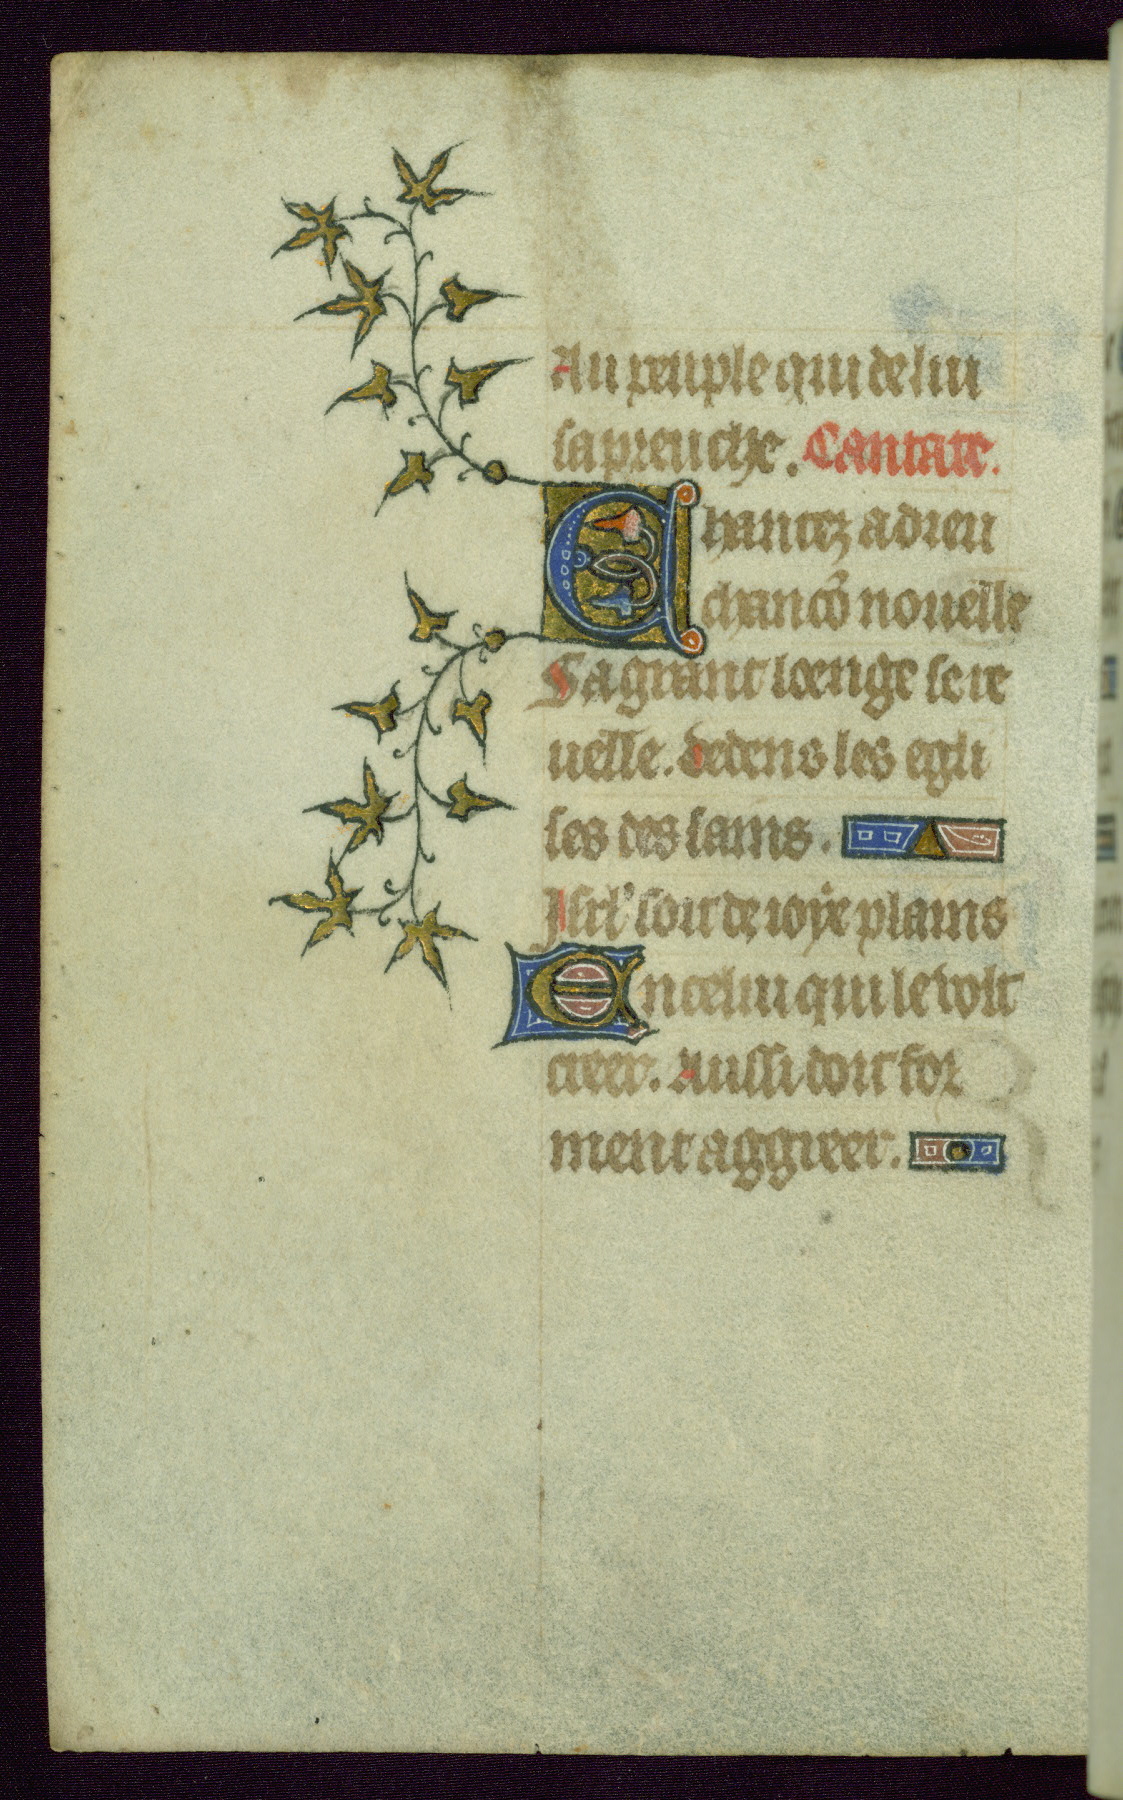 Au peuple qui de lui
sapreuche. Cantate.
Chantez a dieu
chancõ nouelle
Sa grant loenge se re
uelle. dedens les egli
ses des sains.
Isrl' soit de ioye plains
En celui qui le volt
creer. Aussi doit for
ment aggreer.